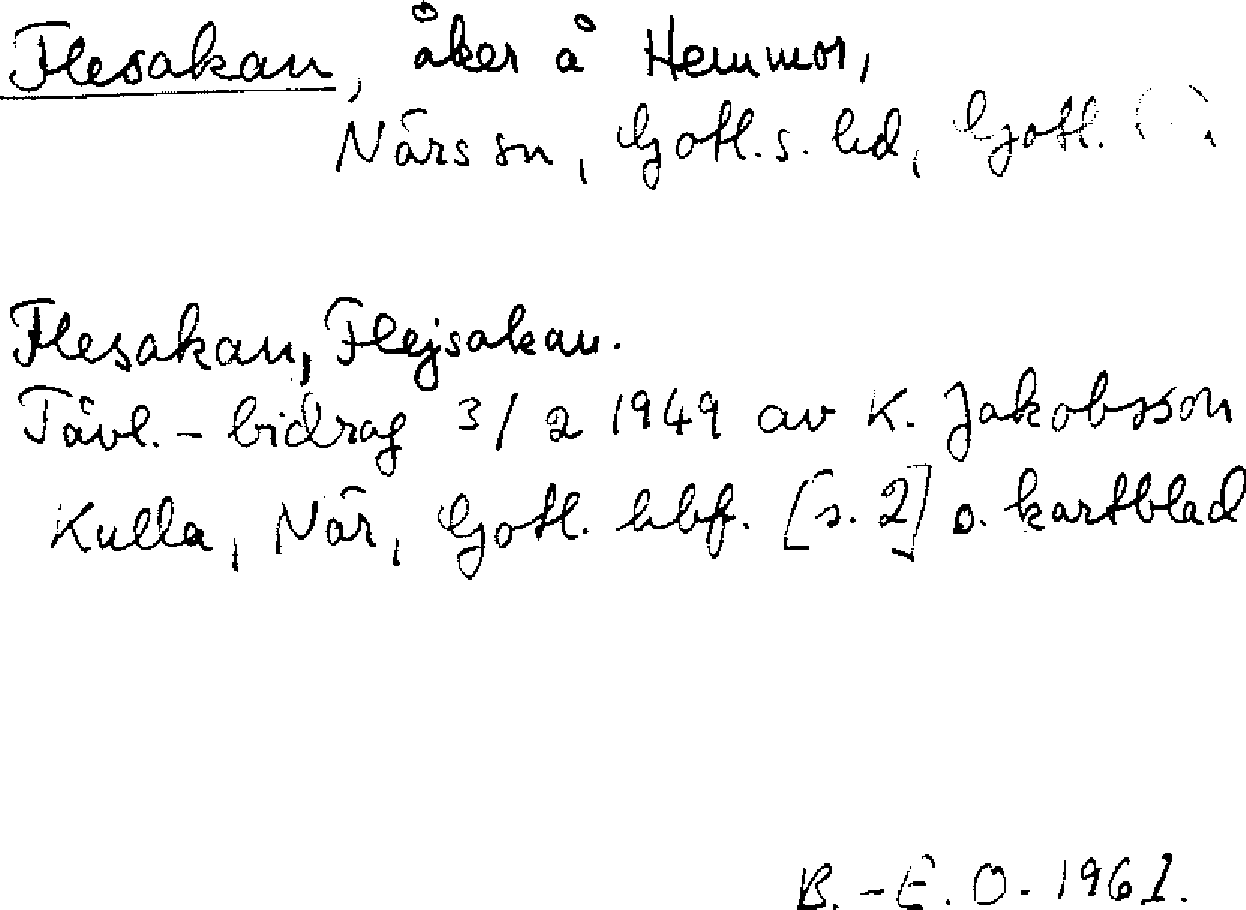 Flesakan, åker å Hemmor,
Närs sn, Gotl. s. hd, Gotl.
Flesakan, Flejsakan.
Tävl. - bidrag 3/2 1949 av K. Jakobsson
Kulla, När, Gotl. hbf. [s. 2] o. kartblad
B.-E. O. 1961.